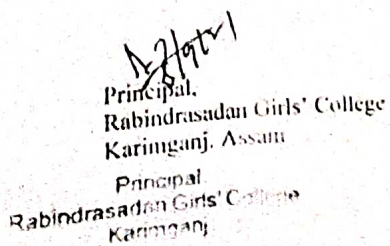 Principal,
Rabindrasadan Girls' College
Karimganj, Assam
Principal
Rabindrasadan Girls' College
Karimganj